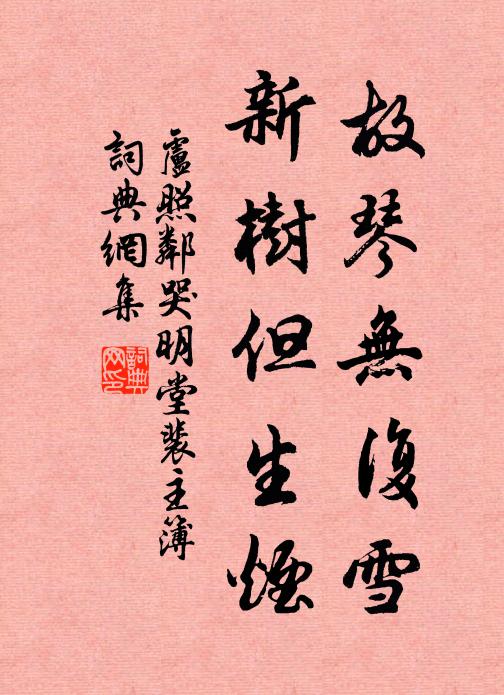 故琴無復雪
新樹但生煙
盧照鄰哭明堂裴主簿
詞典網集
詞典網印